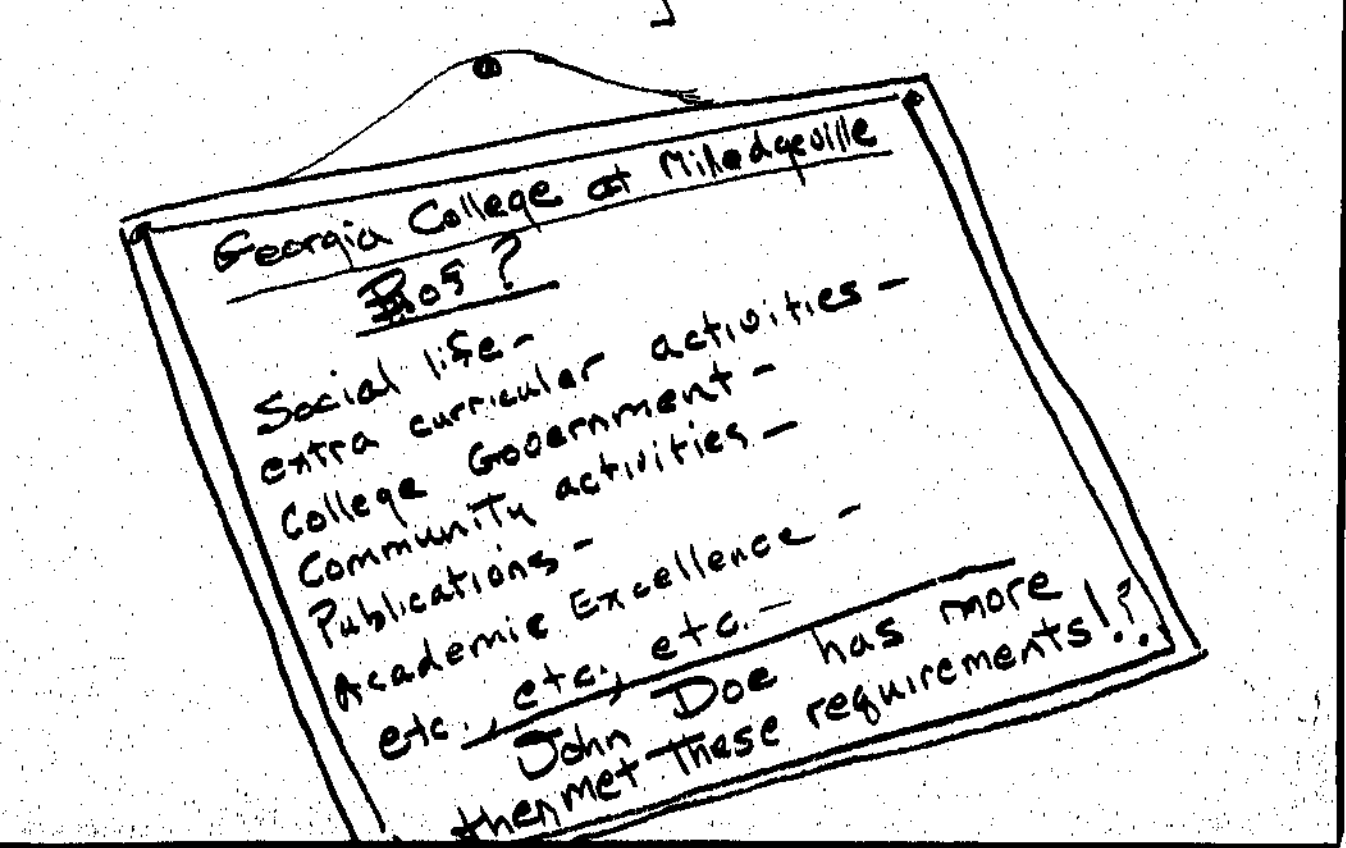 Georgia College at Milledgeville
BS ?
Social life -
extra curricular activities -
College Government -
Community activities -
Publications -
Academic Excellence -
etc., etc., etc. -
John Doe has more
then met these requirements!?.